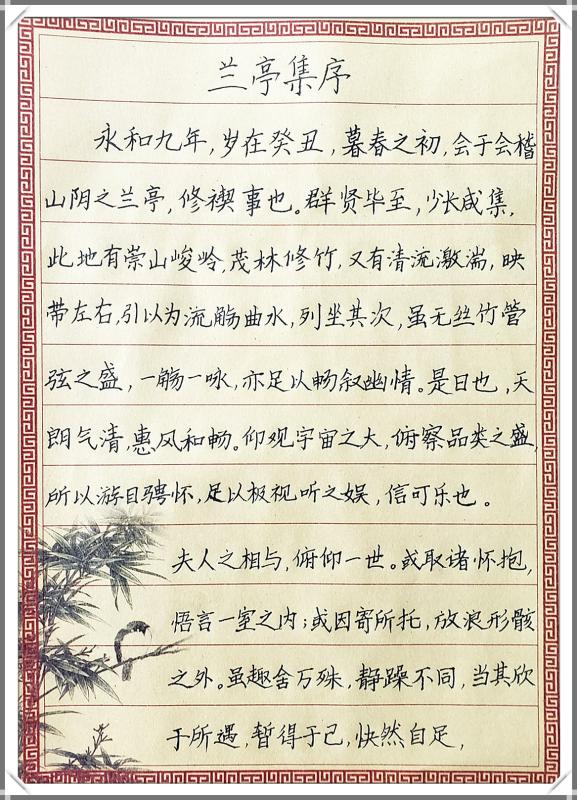 兰亭集序
永和九年，岁在癸丑，暮春之初，会于会稽
山阴之兰亭，修禊事也。群贤毕至，少长咸集，
此地有崇山峻岭，茂林修竹，又有清流激湍，映
带左右，引以为流觞曲水，列坐其次，虽无丝竹管
弦之盛，一觞一咏，亦足以畅叙幽情。是日也，天
朗气清，惠风和畅。仰观宇宙之大，俯察品类之盛，
所以游目骋怀，足以极视听之娱，信可乐也。
夫人之相与，俯仰一世。或取诸怀抱，
悟言一室之内；或因寄所托，放浪形骸
之外。虽趣舍万殊，静躁不同，当其欣
于所遇，暂得于己，快然自足，